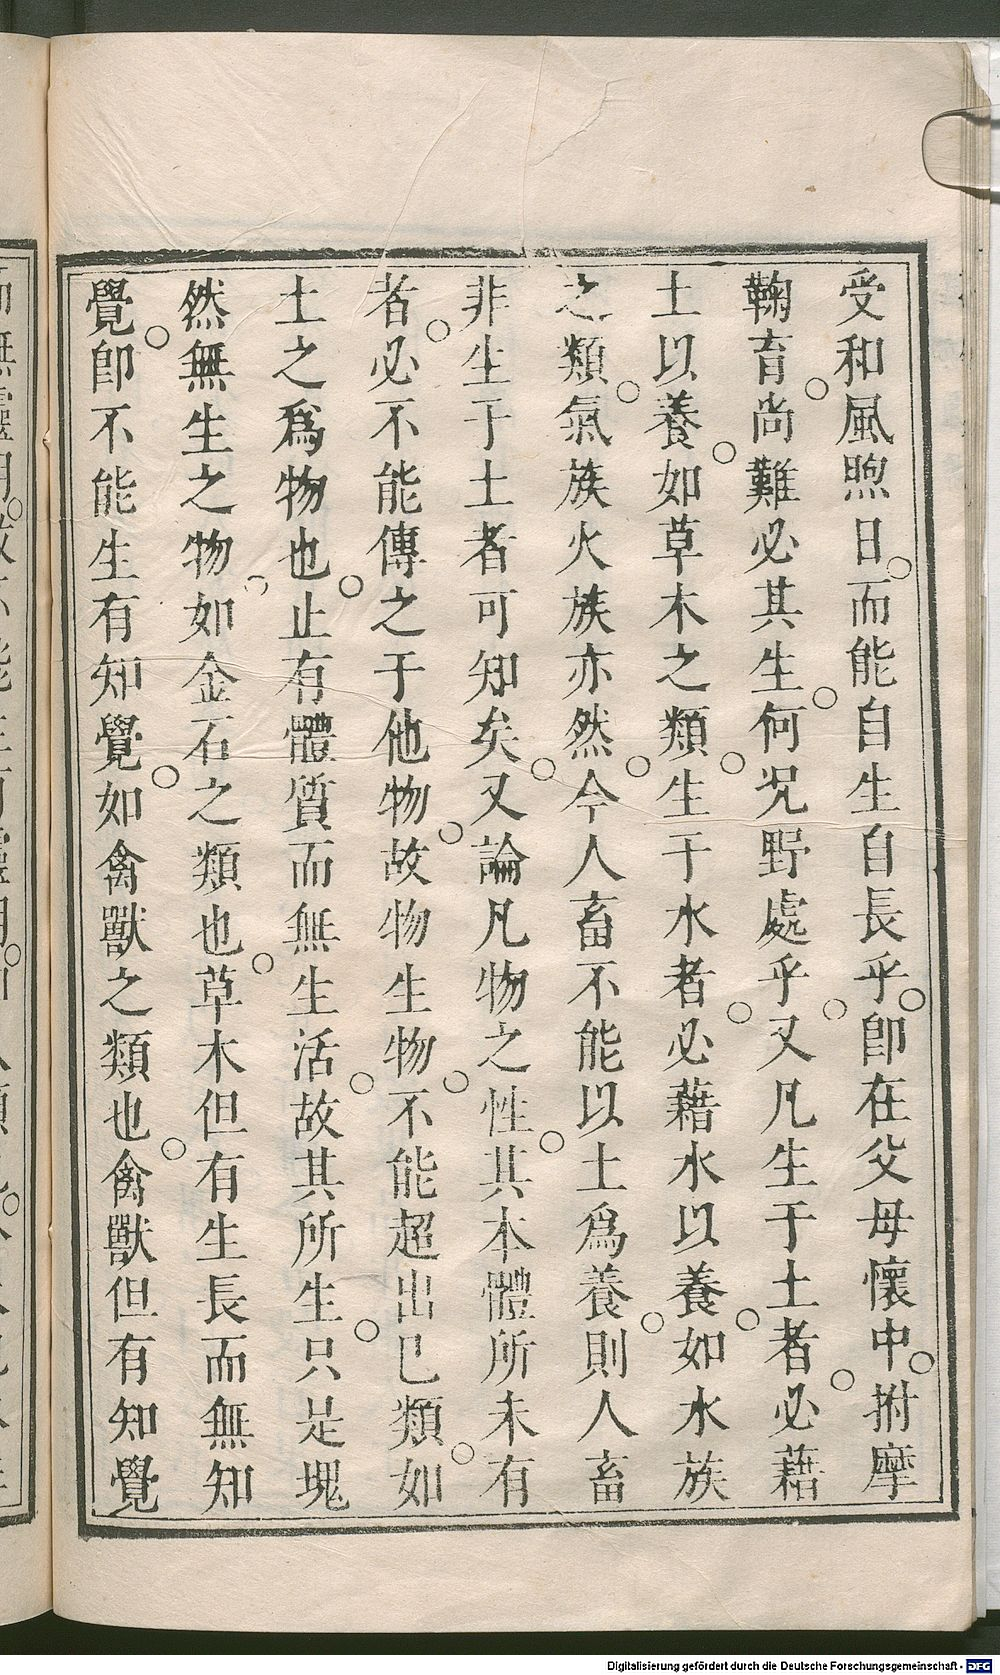 受和風煦日。而能自生自長乎。卽在父母懷中。拊摩
鞠育。尚難必其生。何况野處乎。又凡生于土者。必藉
土以養。如草木之類。生于水者。必藉水以養。如水族
之類。氣族火族亦然。今人畜不能以土爲養。則人畜
非生于土者可知矣。又論凡物之性。其本體所未有
者。必不能傳之于他物。故物生物。不能超出已類。如
土之爲物也。止有體質而無生活。故其所生。只是塊
然無生之物。如金石之類也。草木但有生長而無知
覺。卽不能生有知覺。如禽獸之類也。禽獸但有知覺
Digitalisierung gefördert durch die Deutsche Forschungsgemeinschaft - DFG